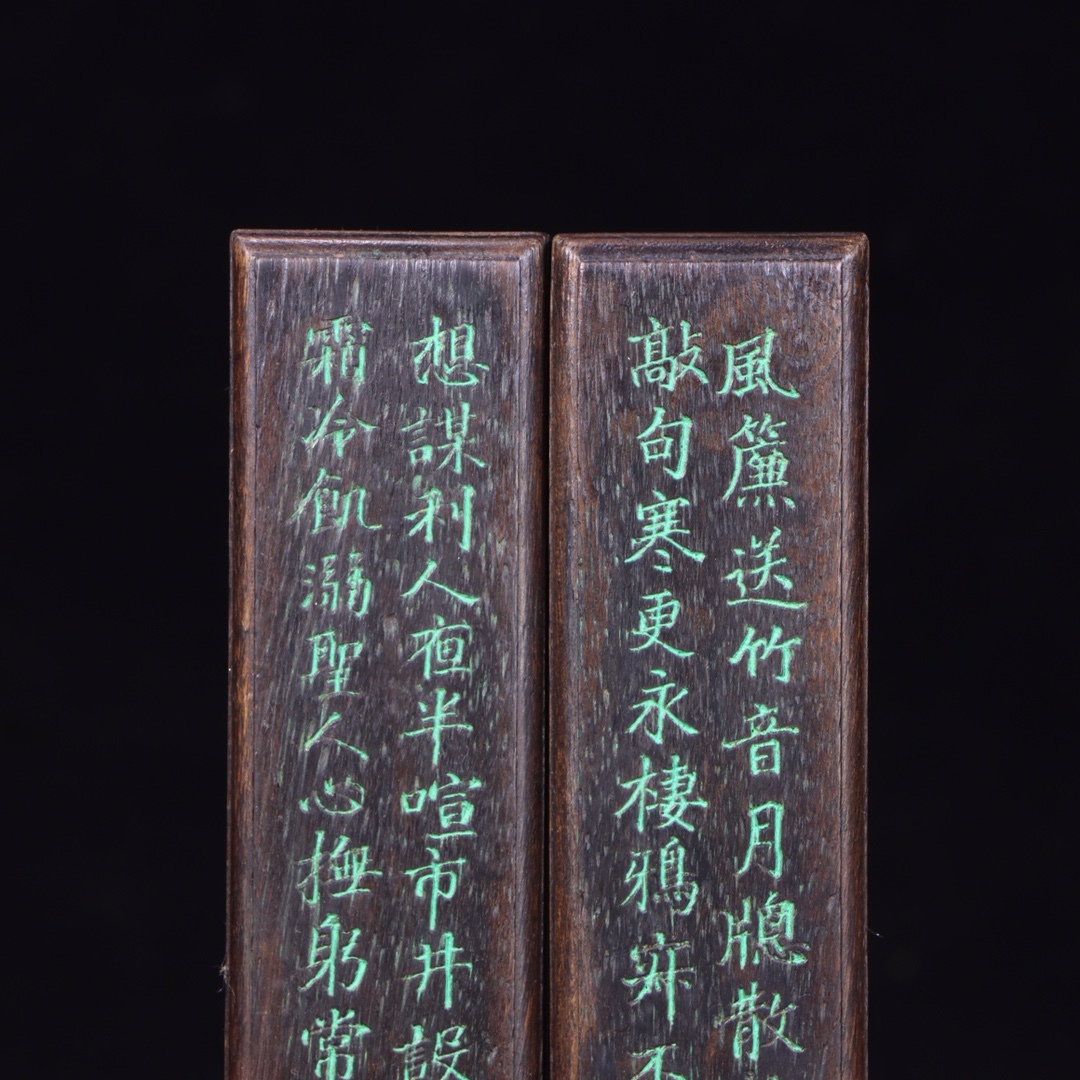 風簾送竹音月牕散
敲句寒更永棲鴉寂不
想謀利人夜半喧市井設
霜冷飢溺聖人心撫躬常